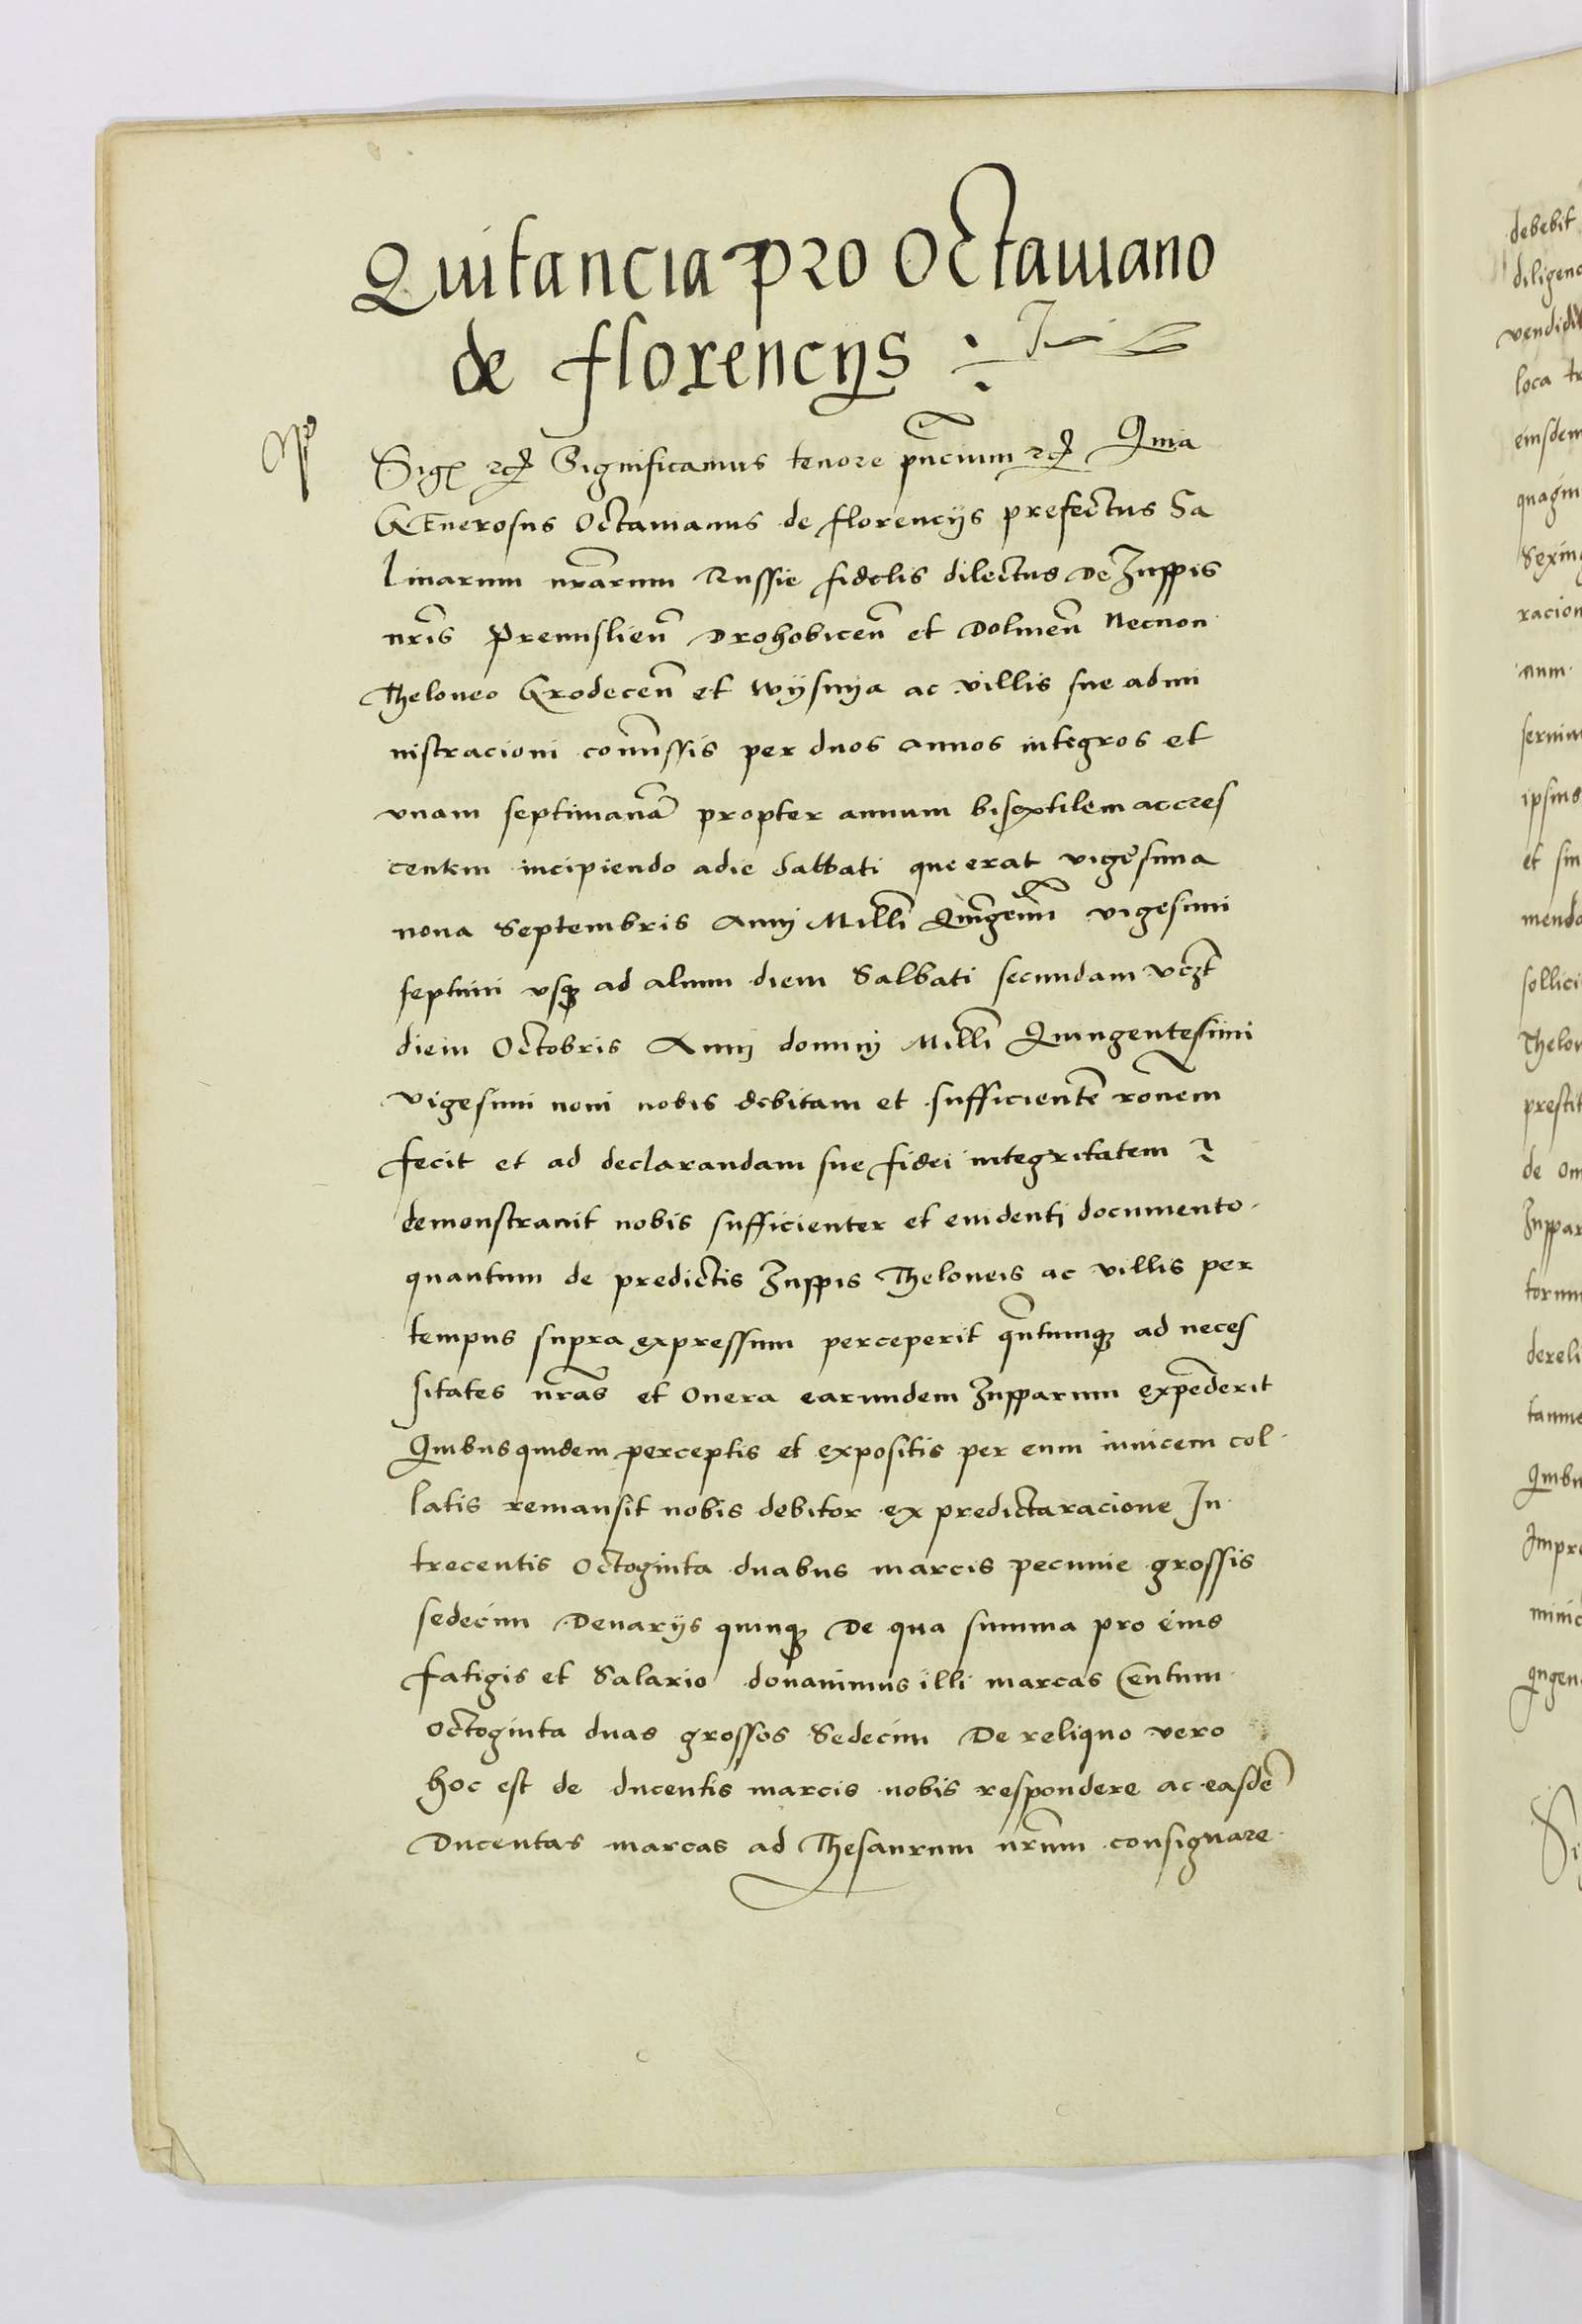 Quitancia pro Octauiano
de florencijs
Sigis etc Significamus tenore pñcium etc Quia
GEnerosus Octauianus de florencijs prefectus Sa
linarum nrãrum Russie fidelis dilectus De Zuppis
nrĩs Premislieñ Drohobiceñ et Dolineñ Necnon
Theloneo Grodeceñ et Wijsnija ac villis sue admi
nistracioni comissis per duos annos integros et
vnam septimanã propter annum bisextilem accres
centem incipiendo adie Sabbati que erat vigesima
nona Septembris Anni Milli Quingeñ vigesimi
septimi vsq ad alium diem Sabbati secundam vczt
diem Octobris Anni domini Milli Quingentesimi
vigesimi noni nobis debitam et sufficientẽ rõnem
fecit et ad declarandam sue fidei integritatem
demonstrauit nobis sufficienter et euidenti documento
quantum de predictis Zuppis Theloneis ac villis per
tempus supra expressum perceperit qñtumq ad neces
sitates nrãs et Onera earundem Zupparum expẽderit
Quibusquidem perceptis et expositis per eum inuicem col
latis remansit nobis debitor ex predictaracione In
trecentis Octoginta duabus marcis pecunie grossis
sedecim Denarijs quinq De qua summa pro eius
fatigis et Salario donauimus illi marcas Centum
Octoginta duas grossos Sedecim De reliquo vero
hoc est de ducentis marcis nobis respondere ac easdẽ
Ducentas marcas ad Thesaurum nrũm consignare
debebit
vendidit
loca
eiusdem
racion
ipsius
et
Thelon
de